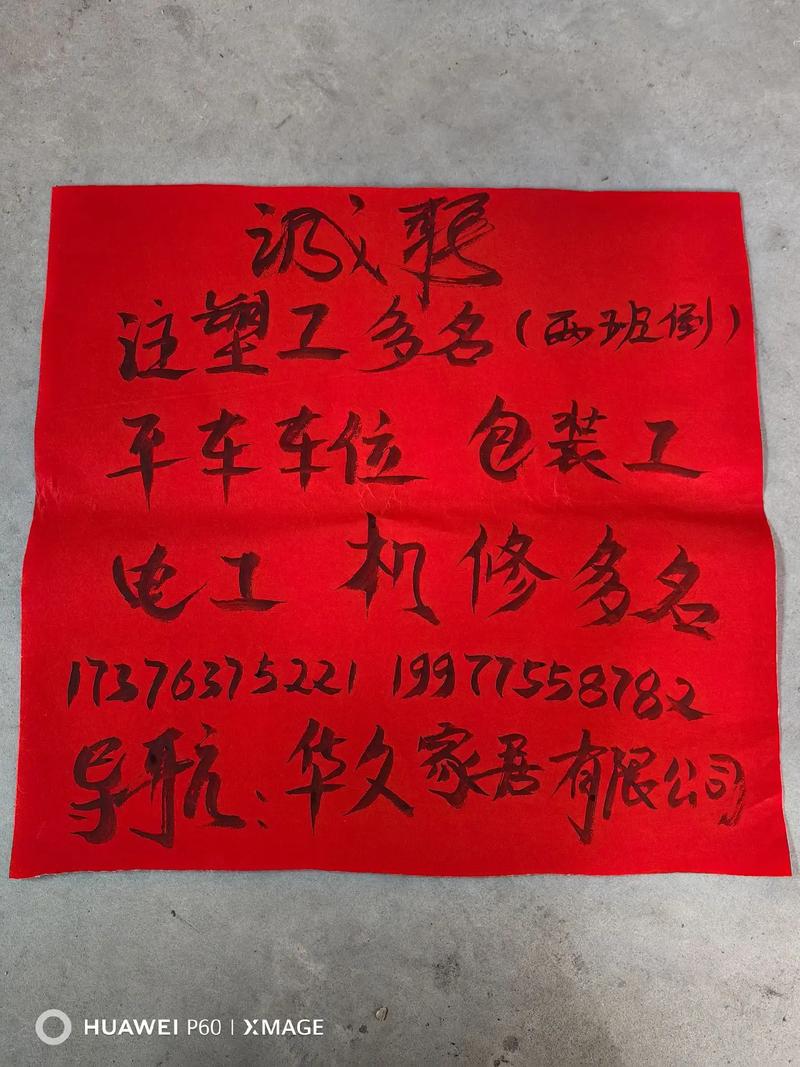 诚聘
注塑工多名(两班倒)
平车车位 包装工
电工 机修多名
17376375221 19977558782
导航:华久家居有限公司
HUAWEI P60 | XMAGE